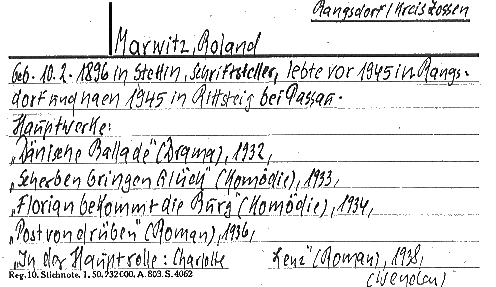 Rangsdorf/Kreis Zossen
Marwitz, Roland
geb. 10.2.1896 in Stettin, Schriftsteller, lebte vor 1945 in Rangs-
dorf und nach 1945 in Rittsteig bei Passau.
Hauptwerke:
„Dänische Ballade" (Drama), 1932,
„Scherben bringen Glück" (Komödie), 1933,
„Florian bekommt die Burg" (Komödie), 1934,
„Post von drüben" (Roman), 1936,
„In der Hauptrolle: Charlotte Lenz" (Roman), 1938,
(wenden)
Reg. 10. Stichnote. 1. 50. 232 000. A. 803. S. 4062